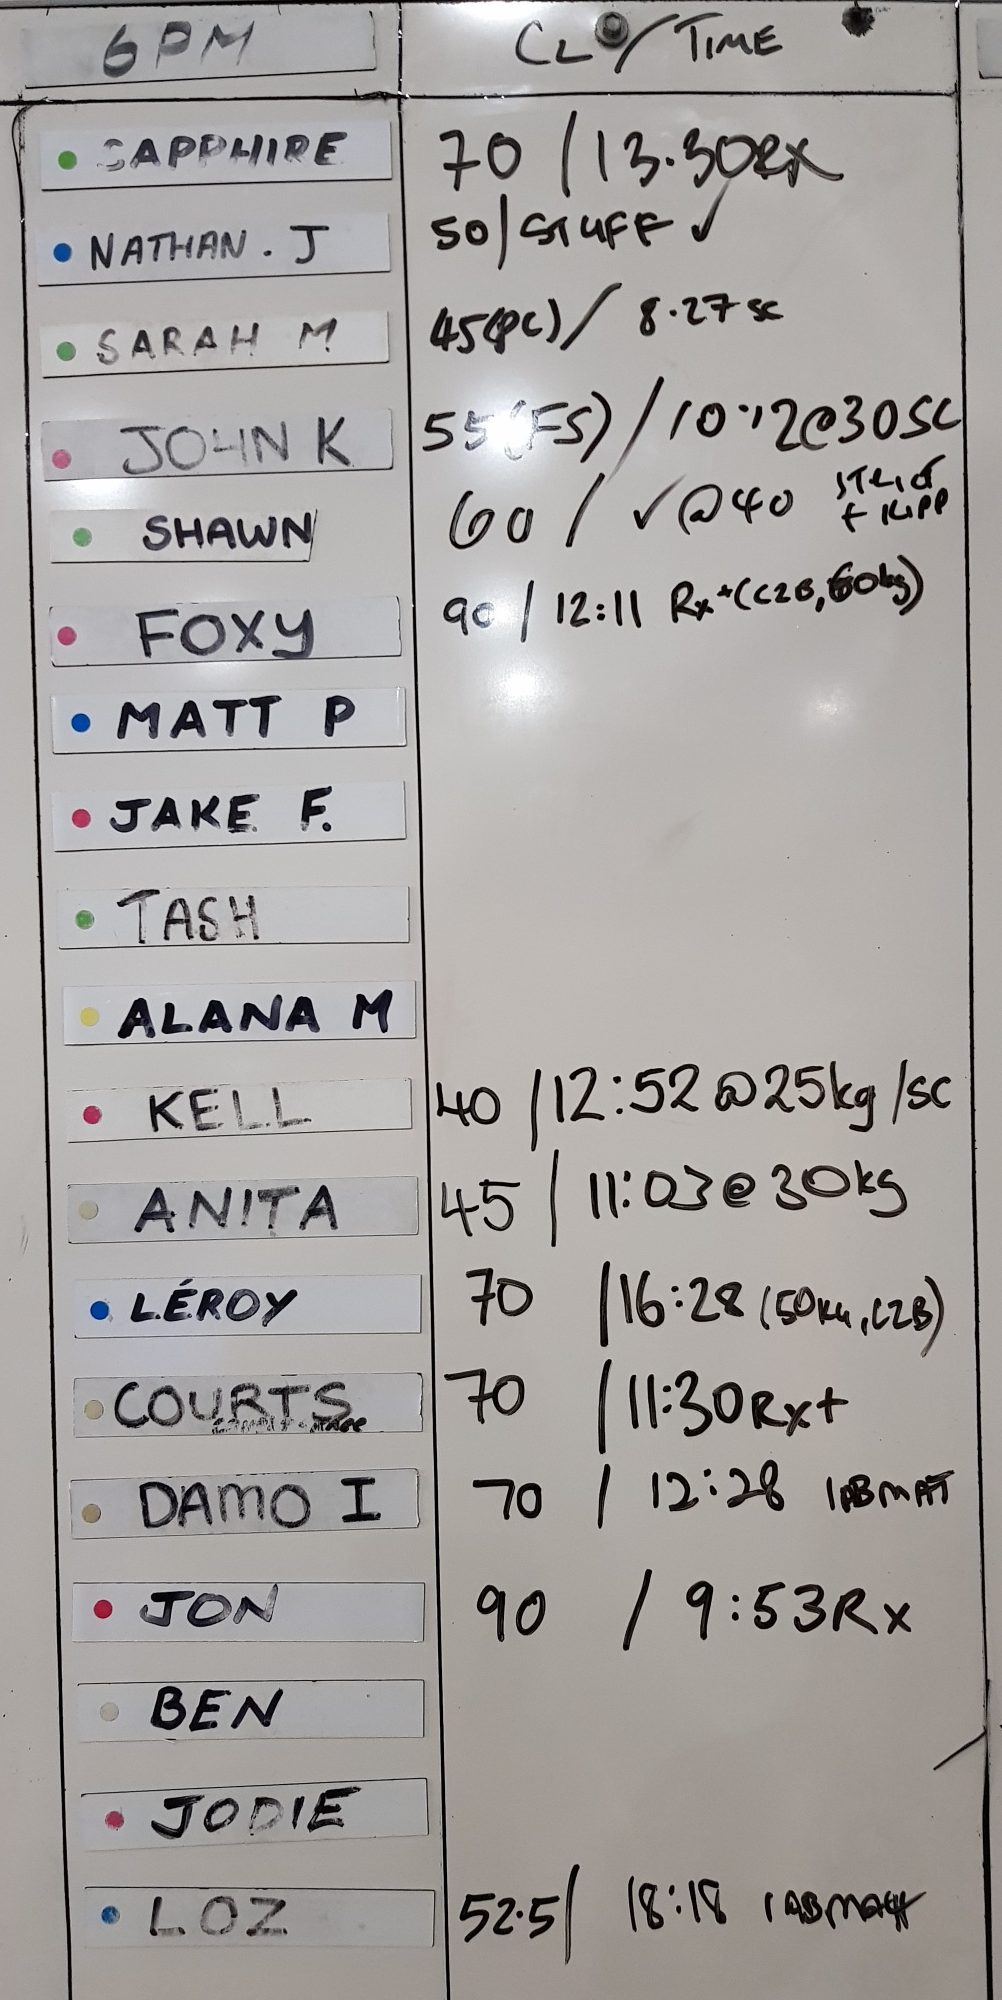 6PM CL/TIME
SAPPHIRE 70 / 13.30RX
NATHAN. J 50/STUFF ✓
SARAH M 45(PC)/ 8.27 SC
JOHN K 55(FS) / 10:12@30SC
SHAWN 60 / ✓ @ 40 STRICT + KIPP
FOXY 90 / 12:11 Rx+(C2B, 60kg)
MATT P
JAKE F.
TASH
ALANA M
KELL 40 /12:52@25kg/SC
ANITA 45 / 11:03@30kg
LÉROY 70 /16:28 (50KG, C2B)
COURTS 70 /11:30Rx+
DAMO I 70 / 12:28 1ABMAT
JON 90 / 9:53Rx
BEN
JODIE
LOZ 52.5/ 18:18 1 ABMAT